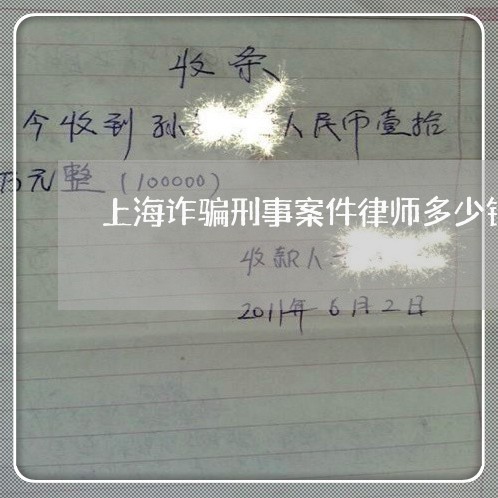 收条
今收到孙 人民币壹拾
万元整(100000)
上海诈骗刑事案件律师多少
收款人
2011年6月2日